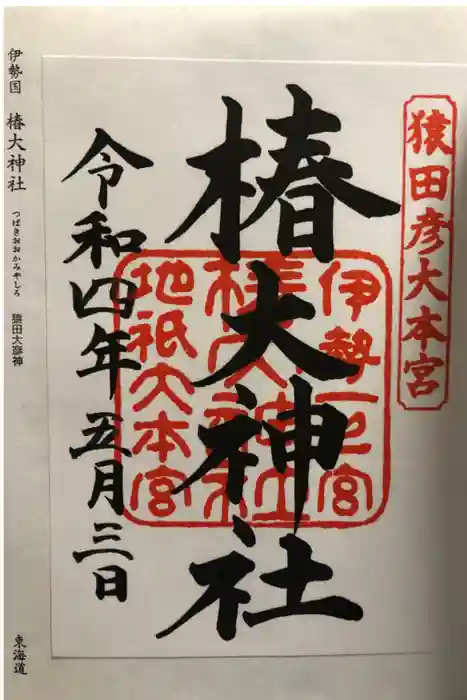 猿田彦大本宮
椿大神社
伊勢一之宮
椿大神社
地祇大本宮
令和四年 五月三日
伊勢国 椿大神社 つばきおおかみやしろ 猿田大彦神 東海道